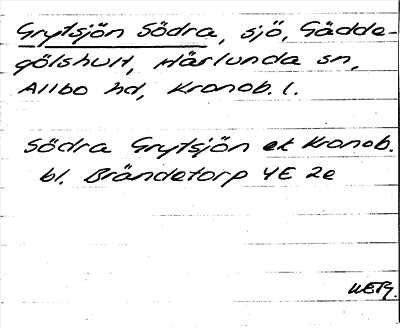 Grytsjön Södra, sjö, Gädde-
gölshult, Härlunda sn,
Allbo hd, Kronob. l.
Södra Grytsjön ek Kronob.
bl. Brändetorp 4E 2e